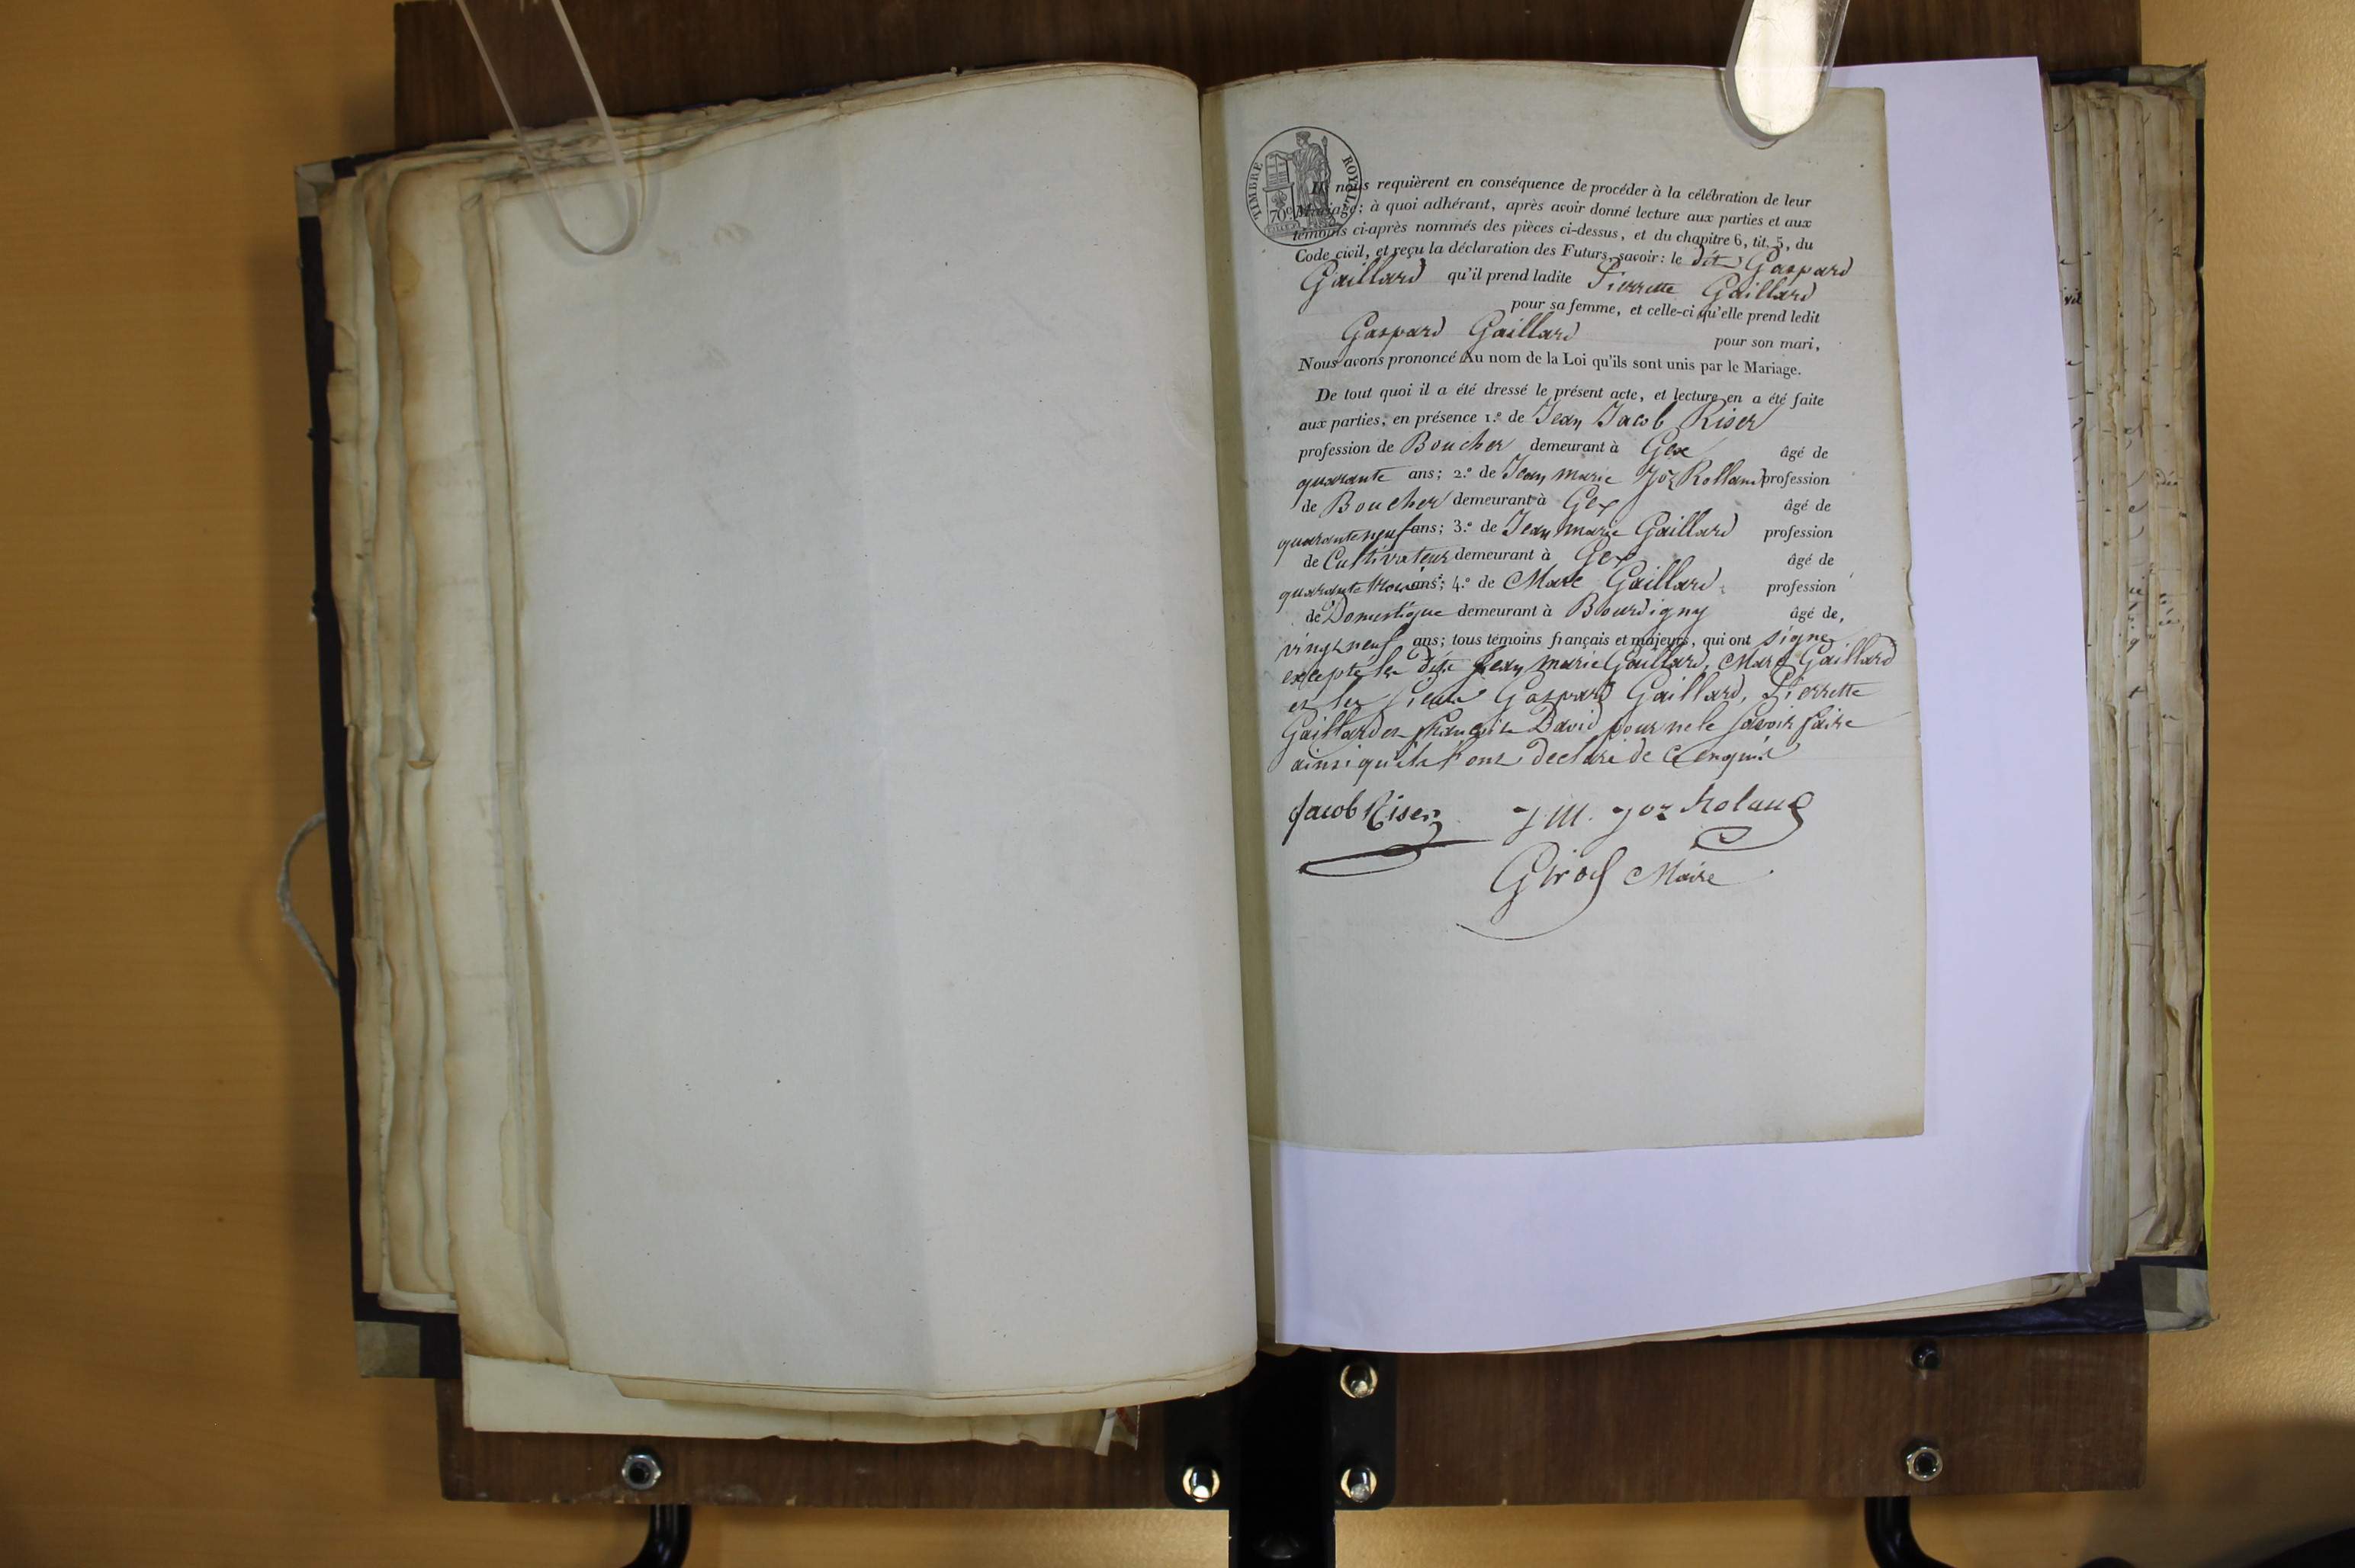 TIMBRE ROYAL
70c
Ils nous requièrent en conséquence de procéder à la célébration de leur
Mariage; à quoi adhérant, après avoir donné lecture aux parties et aux
témoins ci-après nommés des pièces ci-dessus, et du chapitre 6, tit. 5, du
Code civil, et reçu la déclaration des Futurs, savoir: le dit Gaspard
Gaillard qu'il prend ladite Pierrette Gaillard
pour sa femme, et celle-ci qu'elle prend ledit
Gaspard Gaillard pour son mari,
Nous avons prononcé Au nom de la Loi qu'ils sont unis par le Mariage.
De tout quoi il a été dressé le présent acte, et lecture en a été faite
aux parties, en présence 1.º de Jean Jacob Riser
profession de Boucher demeurant à Gex âgé de
quarante ans; 2.º de Jean Marie Joz Rolland profession
de Boucher demeurant à Gex âgé de
quarante neuf ans; 3.º de Jean Marie Gaillard profession
de Cultivateur demeurant à Gex âgé de
quarante trois ans; 4.º de Marc Gaillard profession
de Domestique demeurant à Bourdigny âgé de,
vingt neuf ans; tous témoins français et majeurs, qui ont signe
excepté les dits Jean Marie Gaillard, Marc Gaillard
et les Gaspard Gaillard, Pierrette
Gaillard et Françoise David pour ne le savoir faire
ainsi qu'ils l'ont déclaré de ce enquis
Jacob Riser J. M. Joz Roland
Girod Maire